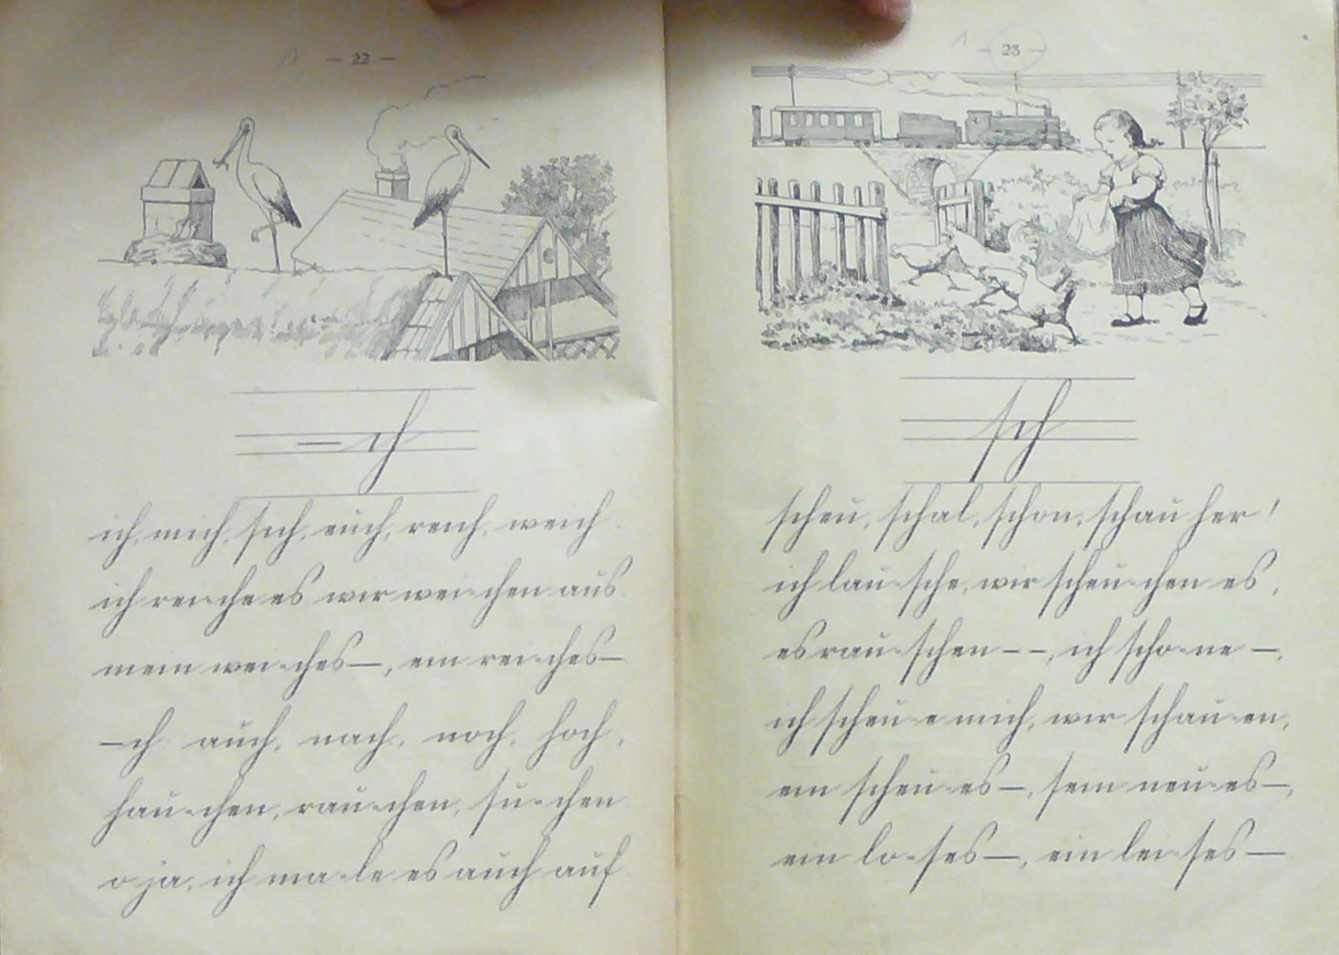 — 22 —
— ch
ich, mich, sich, euch, reich, weich.
ich rei-che es wir wei-chen aus.
mein wei-ches—, ein rei-ches—
—ch auch, nach, noch, hoch,
hau-chen, rau-chen, su-chen
o ja, ich ma-le es auch auf
— 23 —
sch
scheu, schal, schon, schau her!
ich lau-sche, wir scheu-chen es,
es rau-schen — —, ich scho-ne —,
ich scheu-e mich, wir schau-en,
ein scheu-es—, sein neu-es—,
ein lo-ses—, ein lei-ses—